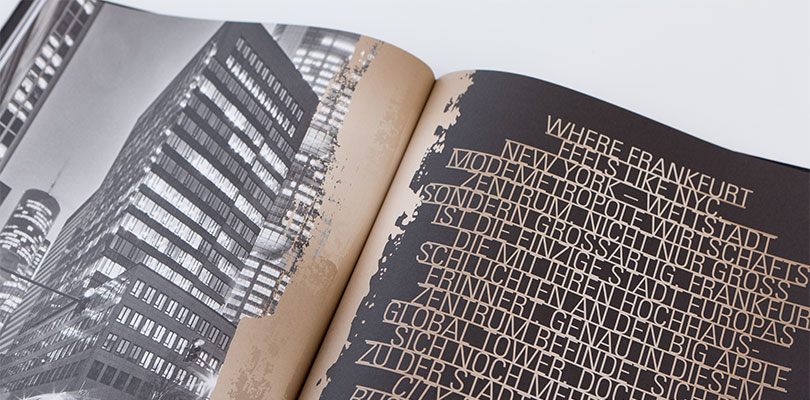 WHERE FRANKFURT
FEELS LIKE NYC
NEW YORK – WELTSTADT
MODEMETROPOLE WIRTSCHAFTS
ZENTRUM. NICHT NUR GROSS
SONDERN GROSSARTIG. FRANKFURT
IST DIE EINZIGE STADT EUROPAS
DIE MIT IHREN HOCHHAUS-
SCHLUCHTEN AN DEN BIG APPLE
ERINNERT. GENAU IN DIESEM
ZENTRUM BEFINDET SICH
GLOBAL TOWER. DOCH
SICH NOCH
ZU DER STAD
CITY